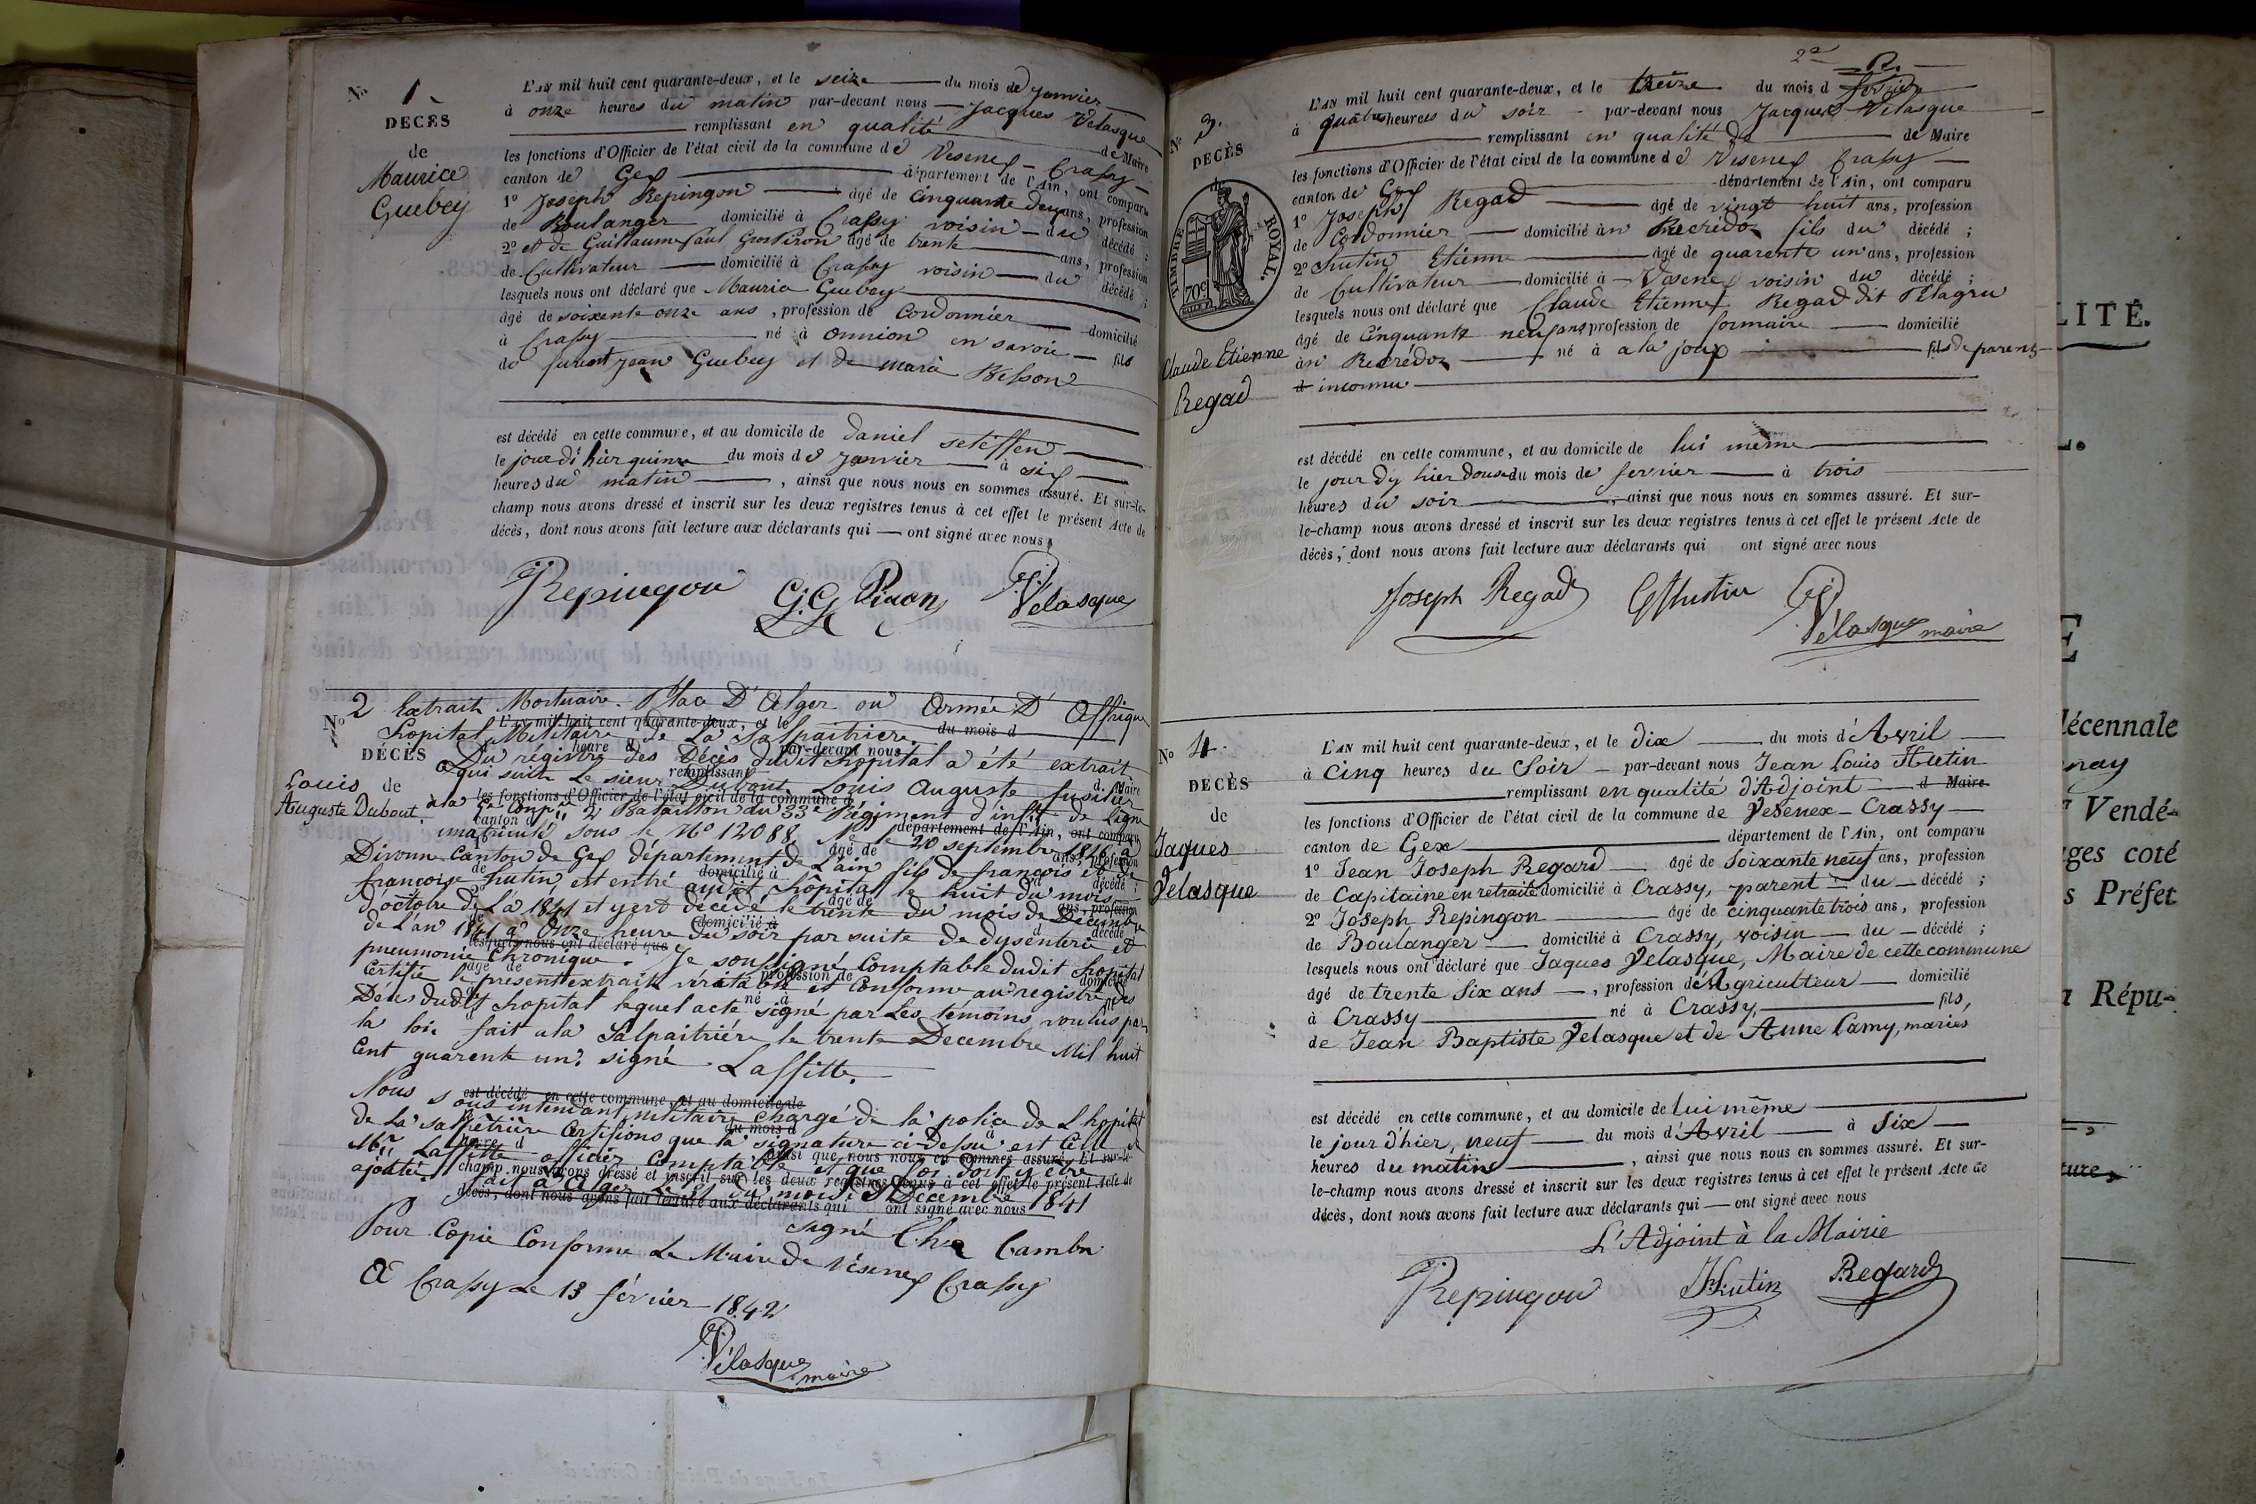 No 1
DÉCÈS
de
Maurice
Guebey
L'AN mil huit cent quarante-deux, et le seize du mois de janvier
à onze heures du matin par-devant nous Jacques Velasque
remplissant en qualité de Maire
les fonctions d'Officier de l'état civil de la commune de Vesenex-Crassy
canton de Gex département de l'Ain, ont comparu
1º Joseph Repingon âgé de cinquante deux ans, profession
de Boulanger domicilié à Crassy voisin du décédé ;
2º et de Guillaume Paul Gros Piron âgé de trente ans, profession
de Cultivateur domicilié à Crassy voisin du décédé ;
lesquels nous ont déclaré que Maurice Guebey
âgé de soixente onze ans, profession de Cordonnier domicilié
à Crassy né à onnion en savoie fils
de furent jean Guebey et de marie Besson
est décédé en cette commune, et au domicile de daniel seteffen
le jour di hier quinze du mois de janvier à six
heures du matin , ainsi que nous nous en sommes assuré. Et sur-le-
champ nous avons dressé et inscrit sur les deux registres tenus à cet effet le présent Acte de
décès, dont nous avons fait lecture aux déclarants qui ont signé avec nous
Repingon G. G. Piron Velasque
No 2
DÉCÈS
de
Louis
Auguste Dubout.
Extrait Mortuaire. Place D'Alger ou Armée D'Affrique
L'AN mil huit cent quarante-deux, et le du mois d
hopital Militaire de La Salpaitriere.
heure d par-devant nous
Du régistre des Décès dudit hopital a été extrait
remplissant
qui suit Le sieur Dubout Louis Auguste fusilier
les fonctions d'Officier de l'état civil de la commune d
à la 6e Compie 2e Bataillon du 33e Régiment d'infie de Ligne
canton d département de l'Ain, ont comparu
immatriculé sous le No 12088, Né le 20 septembre 1816 à
âgé de ans, profession
Divonne Canton de Gex département de L'ain fils de françois et de
de domicilié à d décédé ;
françoise hutin est entré audit hôpital le huit du mois
âgé de ans, profession
d'octobre de L'a 1841 et y est décédé le trente du mois de Décembre
de domicilié à d décédé
de L'an 1841 à Onze heure du soir par suite de dysenterie et
lesquels nous ont déclaré que
pneumonie Chronique. Je soussigné Comptable dudit hopital
âgé de profession de domicilié
Certifie le present extrait véritable et Conforme au registre des
né à
Décès dudit hopital lequel acte signé par Les témoins voulus par
la loi fait a la Salpaitrière le trente Decembre Mil huit
Cent quarente un. signé Laffitte.
est décédé en cette commune, et au domicile de
Nous sous intendant militaire chargé de la police de L'hopital
du mois d
de La salpètrière Certifions que la signature ci-Dessu est Celle de
heure d ainsi que nous nous en sommes assuré. Et sur-le-
Mr Laffitte officier Comptable et que foi doit y être
champ nous avons dressé et inscrit sur les deux registres tenus à cet effet le présent Acte de
ajoutée. fait à Alger Le 31 du mois Decembre 1841
décès, dont nous avons fait lecture aux déclarants qui ont signé avec nous
signé Che Cambn
Pour Copie Conforme Le Maire de Vésenex Crassy
A Crassy Le 13 février 1842
Vélasque
maire
2e
No 3.
DÉCÈS
de
TIMBRE ROYAL.
70c
Claude Etienne
Regad
L'AN mil huit cent quarante-deux, et le treize du mois d fevrier
à quatre heures du soir par-devant nous Jacques Velasque
remplissant en qualité de de Maire
les fonctions d'Officier de l'état civil de la commune de Vesenex Crassy
canton de Gex département de l'Ain, ont comparu
1º Joseph Regad âgé de vingt huit ans, profession
de Cordonnier domicilié à fils du décédé ;
2º hutin Etienne âgé de quarente un ans, profession
de Cultivateur domicilié à Vesenex voisin du décédé ;
lesquels nous ont déclaré que Claude Etienne Regad dit
âgé de Cinquante neuf ans profession de domicilié
né à a la joux fils de parents
inconnu
est décédé en cette commune, et au domicile de lui même
le jour d'y hier douse du mois de fevrier à trois
heures du soir , ainsi que nous nous en sommes assuré. Et sur-
le-champ nous avons dressé et inscrit sur les deux registres tenus à cet effet le présent Acte de
décès, dont nous avons fait lecture aux déclarants qui ont signé avec nous
Joseph Regad Hutin Vélasque maire
No 4.
DÉCÈS
de
Jaques
Velasque
L'AN mil huit cent quarante-deux, et le dix du mois d'Avril
à Cinq heures du Soir par-devant nous Jean Louis Hutin
remplissant en qualité d'Adjoint d Maire
les fonctions d'Officier de l'état civil de la commune de Vesenex-Crassy
canton de Gex département de l'Ain, ont comparu
1º Jean Joseph Regard âgé de Soixante neuf ans, profession
de Capitaine en retraite domicilié à Crassy, parent du décédé ;
2º Joseph Repingon âgé de cinquante trois ans, profession
de Boulanger domicilié à Crassy, voisin du décédé ;
lesquels nous ont déclaré que Jaques Velasque, Maire de cette commune
âgé de trente Six ans , profession d'Agriculteur domicilié
à Crassy né à Crassy, fils,
de Jean Baptiste Velasque et de Anne Lamy, mariés
est décédé en cette commune, et au domicile de lui même
le jour d'hier, neuf du mois d'Avril à Six
heures du matin , ainsi que nous nous en sommes assuré. Et sur-
le-champ nous avons dressé et inscrit sur les deux registres tenus à cet effet le présent Acte de
décès, dont nous avons fait lecture aux déclarants qui ont signé avec nous
L'Adjoint à la Mairie
Repingon Hutin Regard
LITÉ.
décennale
Vendé-
ges coté
s Préfet
Répu-